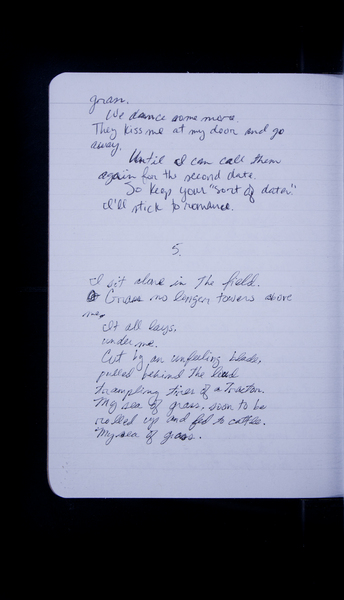 We dance some more.
They kiss me at my door and go
away.
Until I can call them
again for the second date.
So keep your "sort of dates"
I'll stick to romance.
5.
I sit alone in The field.
Grass no longer towers above
me.
It all lays,
under me.
Cut by an unfeeling blade,
pulled behind The
trampling tires of a Tractor.
My sea of grass, soon to be
rolled up and fed to cattle.
My sea of grass.